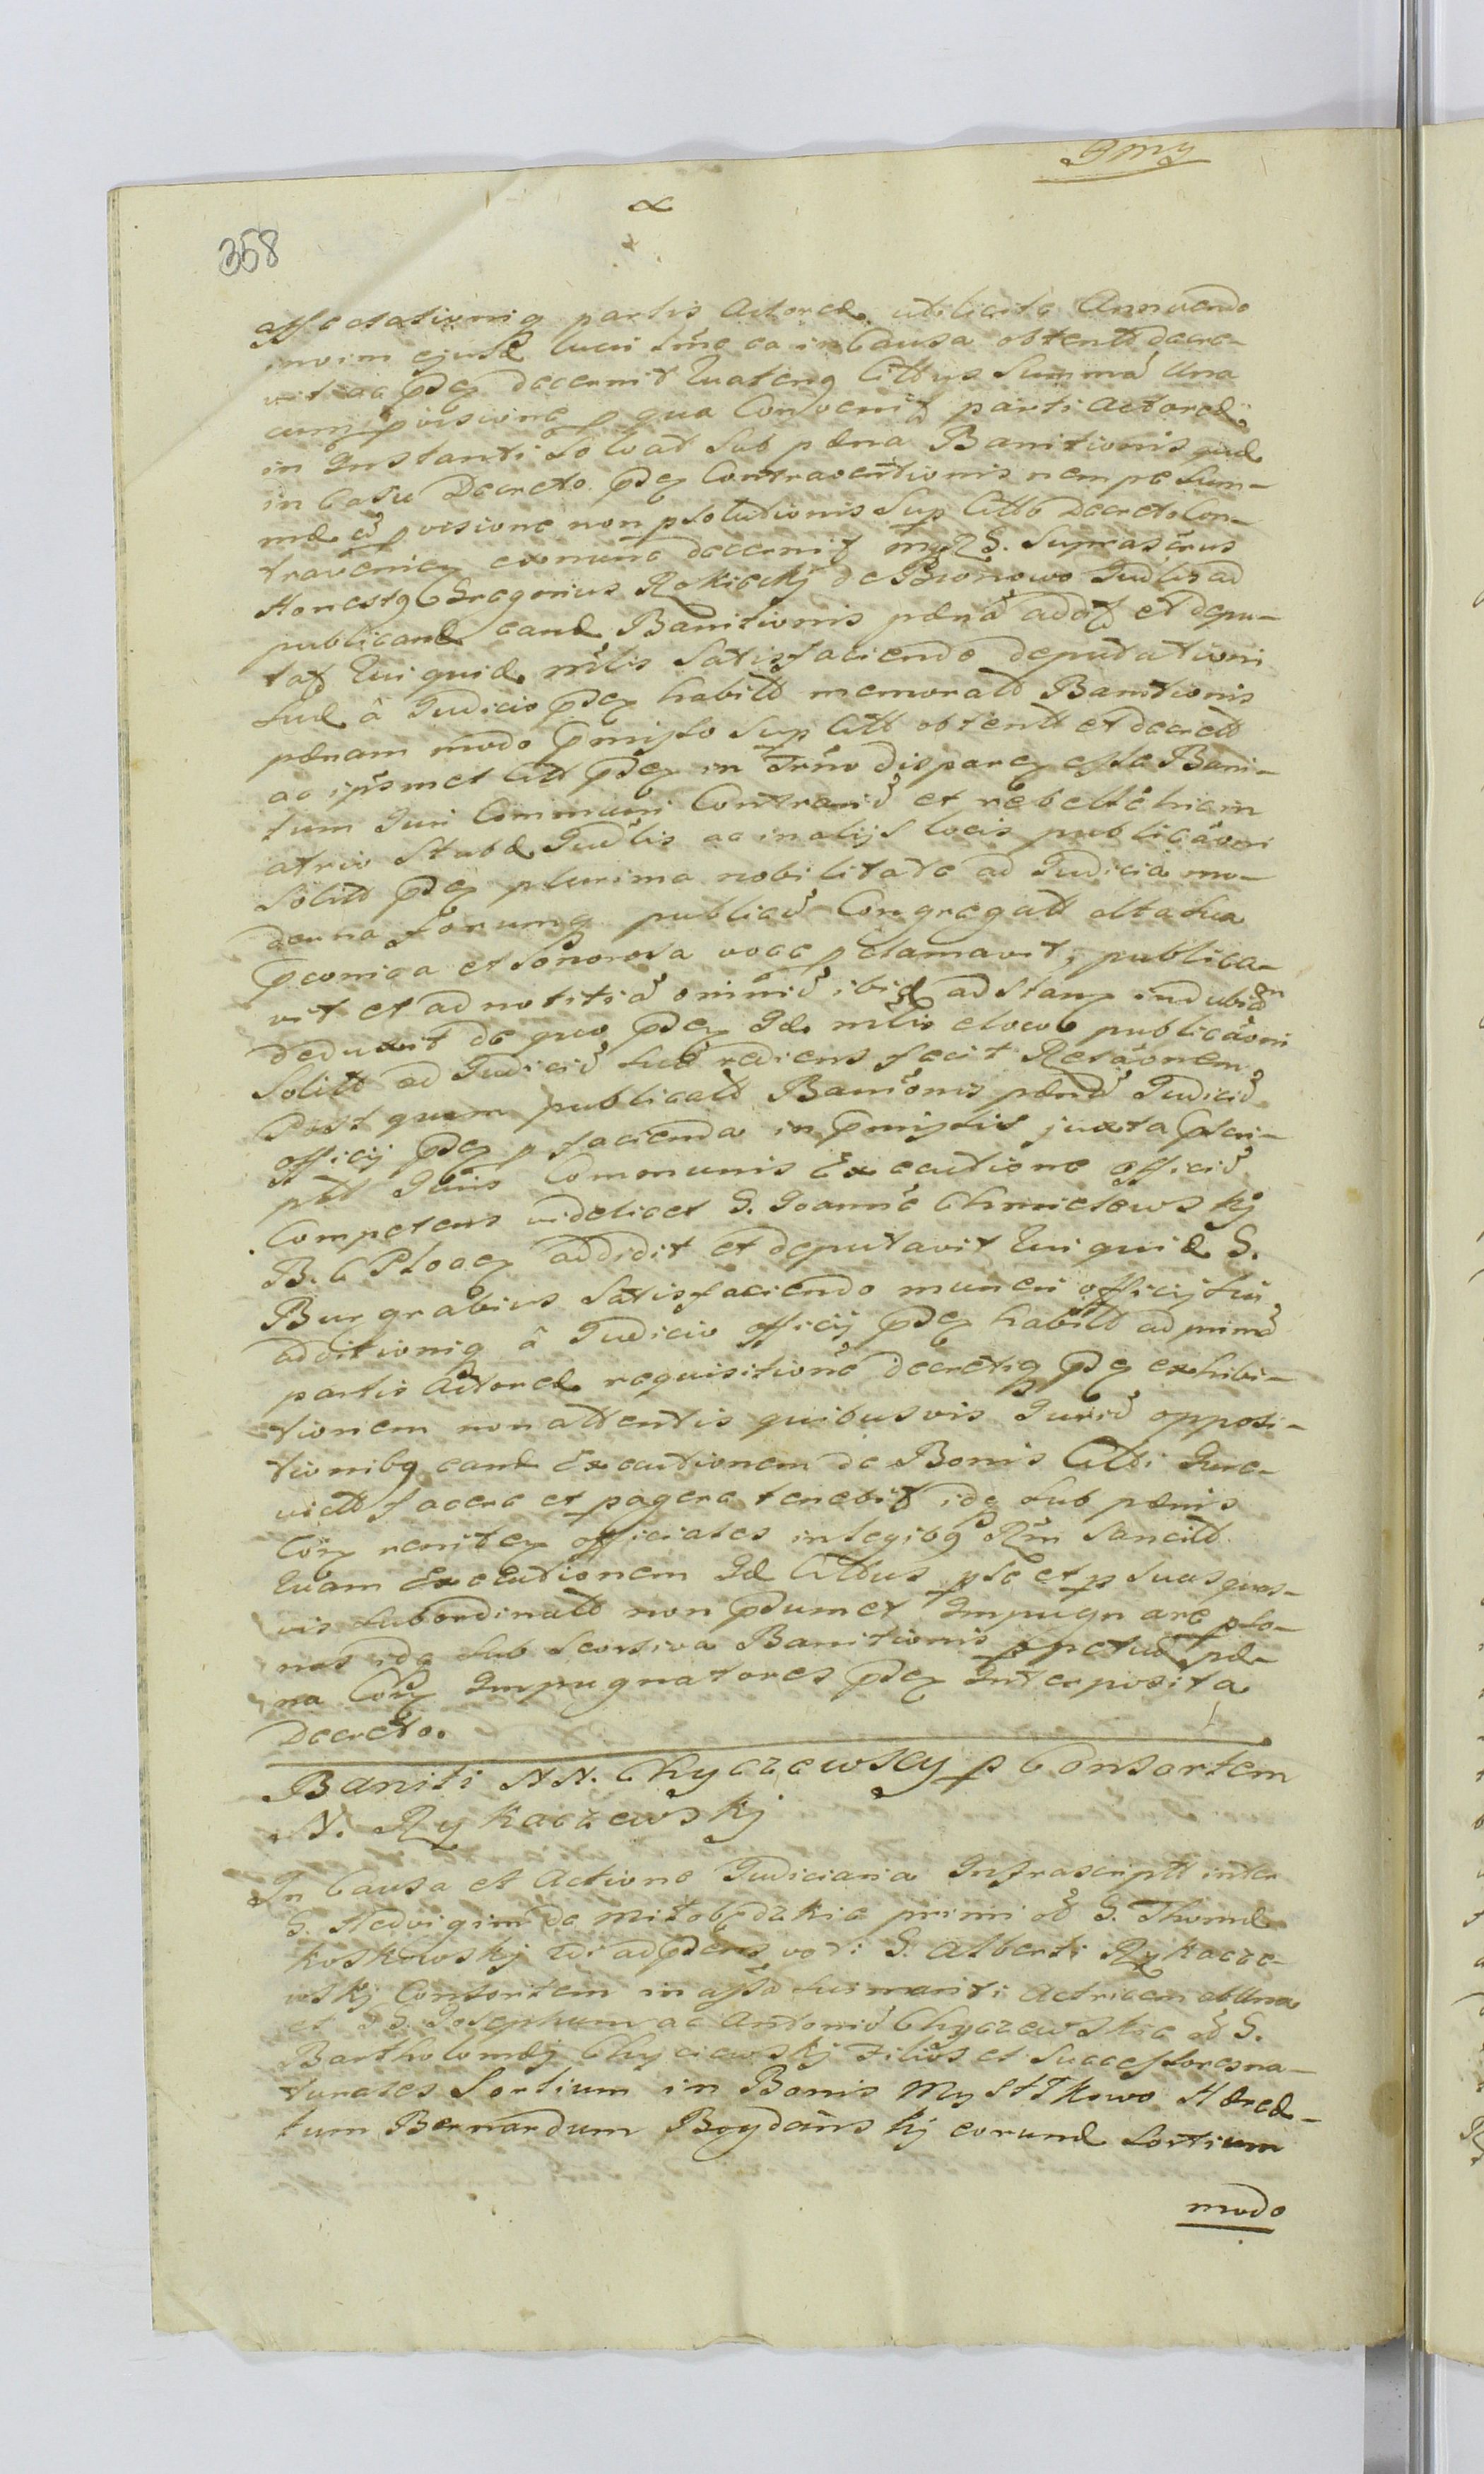 9my
358
affectationiq partis Actoreæ uti licitæ Annuendo
in vim ejusd lucri tme ea in Causa obtenti decre-
vit ac pdez decernit Quatenq Cittus Summã Una
cum pvisione p qua Convenit parti Actoreæ
in Instanti Solvat Sub pæna Banitionis quæ
in Casu Decreto pdez Contraventionis nempe Sum-
mæ cũ pvisione non psolutionis Sup Citto Decreto Con-
travenien ex nunc decernit G. Suprascrus
Honestq Gregorius Rokickj de Bronowo Judlis ad
publicand eand Banitionis pænã addit et depu-
tat Qui quid mlis Satisfaciendo deputationi
Suæ â Judicio pdez habitæ memoratæ Banitionis
pænam modo pmisso Sup Citt obtent et decret
ac ipsmet Citt pdez in Trno disparez esse Bani-
tum Juri Communi Contrariũ et rebellẽ hic in
atrio Stubæ Judlis ac in alijs locis publicãoni
Solitt pdez plurima nobilitate ad Judicia mo-
derna forumq publicũ Congregatt alta Sua
pconica et Sonorosa voce pclamavit, publica-
vit et ad notitiã omniũ ibid adstanz indubiam
deduxit de quo pdez Id mlis e loco publicãoni
Solitt ad Judiciũ Suũ rediens fecit Relãonem
Post quam publicatã Banionis pænã Judiciũ
officij pdez p facienda in pmissis juxta pscri-
ptt Juris Communis Executione officiũ
Competens videlicet G. Joannẽ Chmielewskj
B. C Plocez addidit et deputavit Qui quid G.
Burgrabius Satisfaciendo muneri officij Sui
additioniq â Judicio officij pdez habitt ad primã
partis Actoreæ requisitionẽ decretiq pdez exhibi-
tionem non attentis quibusvis Juriũ opposi-
tionibq eand Executionem de Bonis Citti Qure-
victt facere et pagere tenebit idq Sub pænis
Con renitez officiales in legibq Rni Sancitt
Quam Executionem Id Cittus p se et p Suas quas-
vis Subordinatt non psumet Impugnare pso-
nas idq Sub Seorsiva Banitionis ppetuæ pæ-
na Con Impugnatores pdez Interposita
Decreto.
Baniti NN. Chyczewscy p Consortem
N. Rykaczewskj
In Causa et Actione Judiciaria Infrascriptt inter
G. Hedvigim de Miłobędzkie primi oĩ G. Thomæ
Koskowskj 2di ad pdens voti G. Alberti Rykacze-
wskj Consortem in assa Sui mariti Actricem ab Una
et GG. Josephum ac Antoniũ Chyczewskie oĩ G.
Bartholomæj Chyciewskj Filios et Successores na-
turales Sortium in Bonis Mystkowo Hæred-
tum Bernardum Bogdanskj eorund Sortium
modo